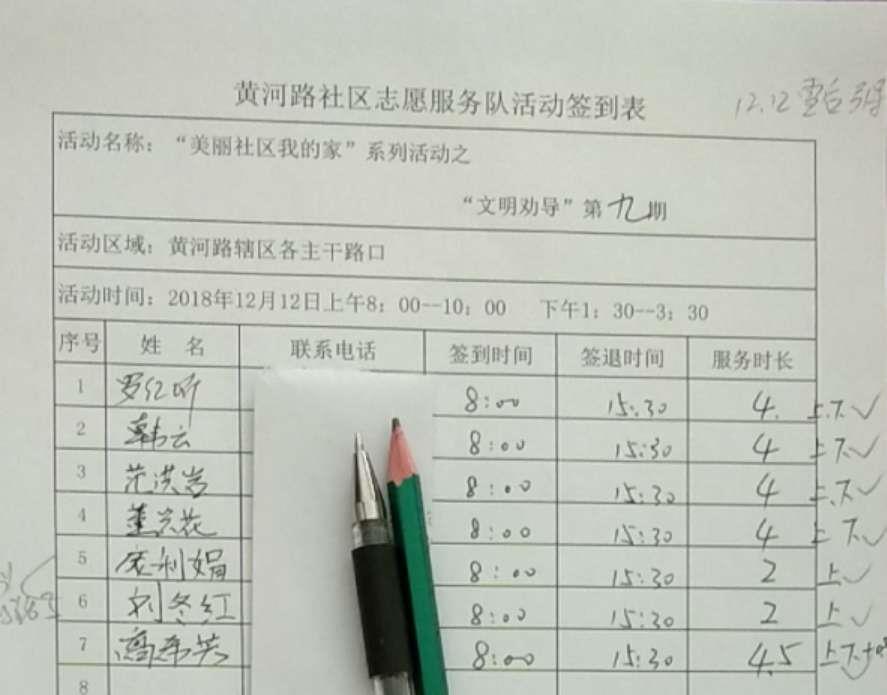 黄河路社区志愿服务队活动签到表
12.12
活动名称：“美丽社区我的家”系列活动之
“文明劝导”第九期
活动区域：黄河路辖区各主干路口
活动时间：2018年12月12日上午8：00--10：00 下午1：30--3：30
序号 姓 名 联系电话 签到时间 签退时间 服务时长
1 罗红昕 8:00 15:30 4. 上.下.✓
2 韩云 8:00 15:30 4 上下✓
3 范洪岩 8:00 15:30 4 上.下✓
4 董兴花 8:00 15:30 4 上下✓
5 利娟 8:00 15:30 2 上✓
6 刘冬红 8:00 15:30 2 上✓
7 高希芙 8:00 15:30 4.5 上下
8